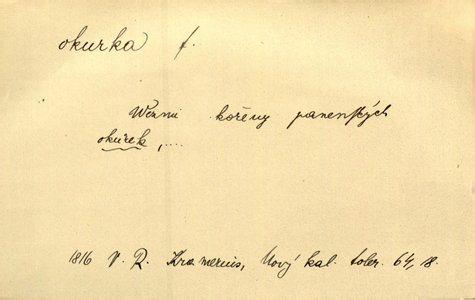 okurka f.
Wezmi kořeny panenských
okurek, ....
1816 V. R. Kramerius, Nový kal. toler. 64, 18.